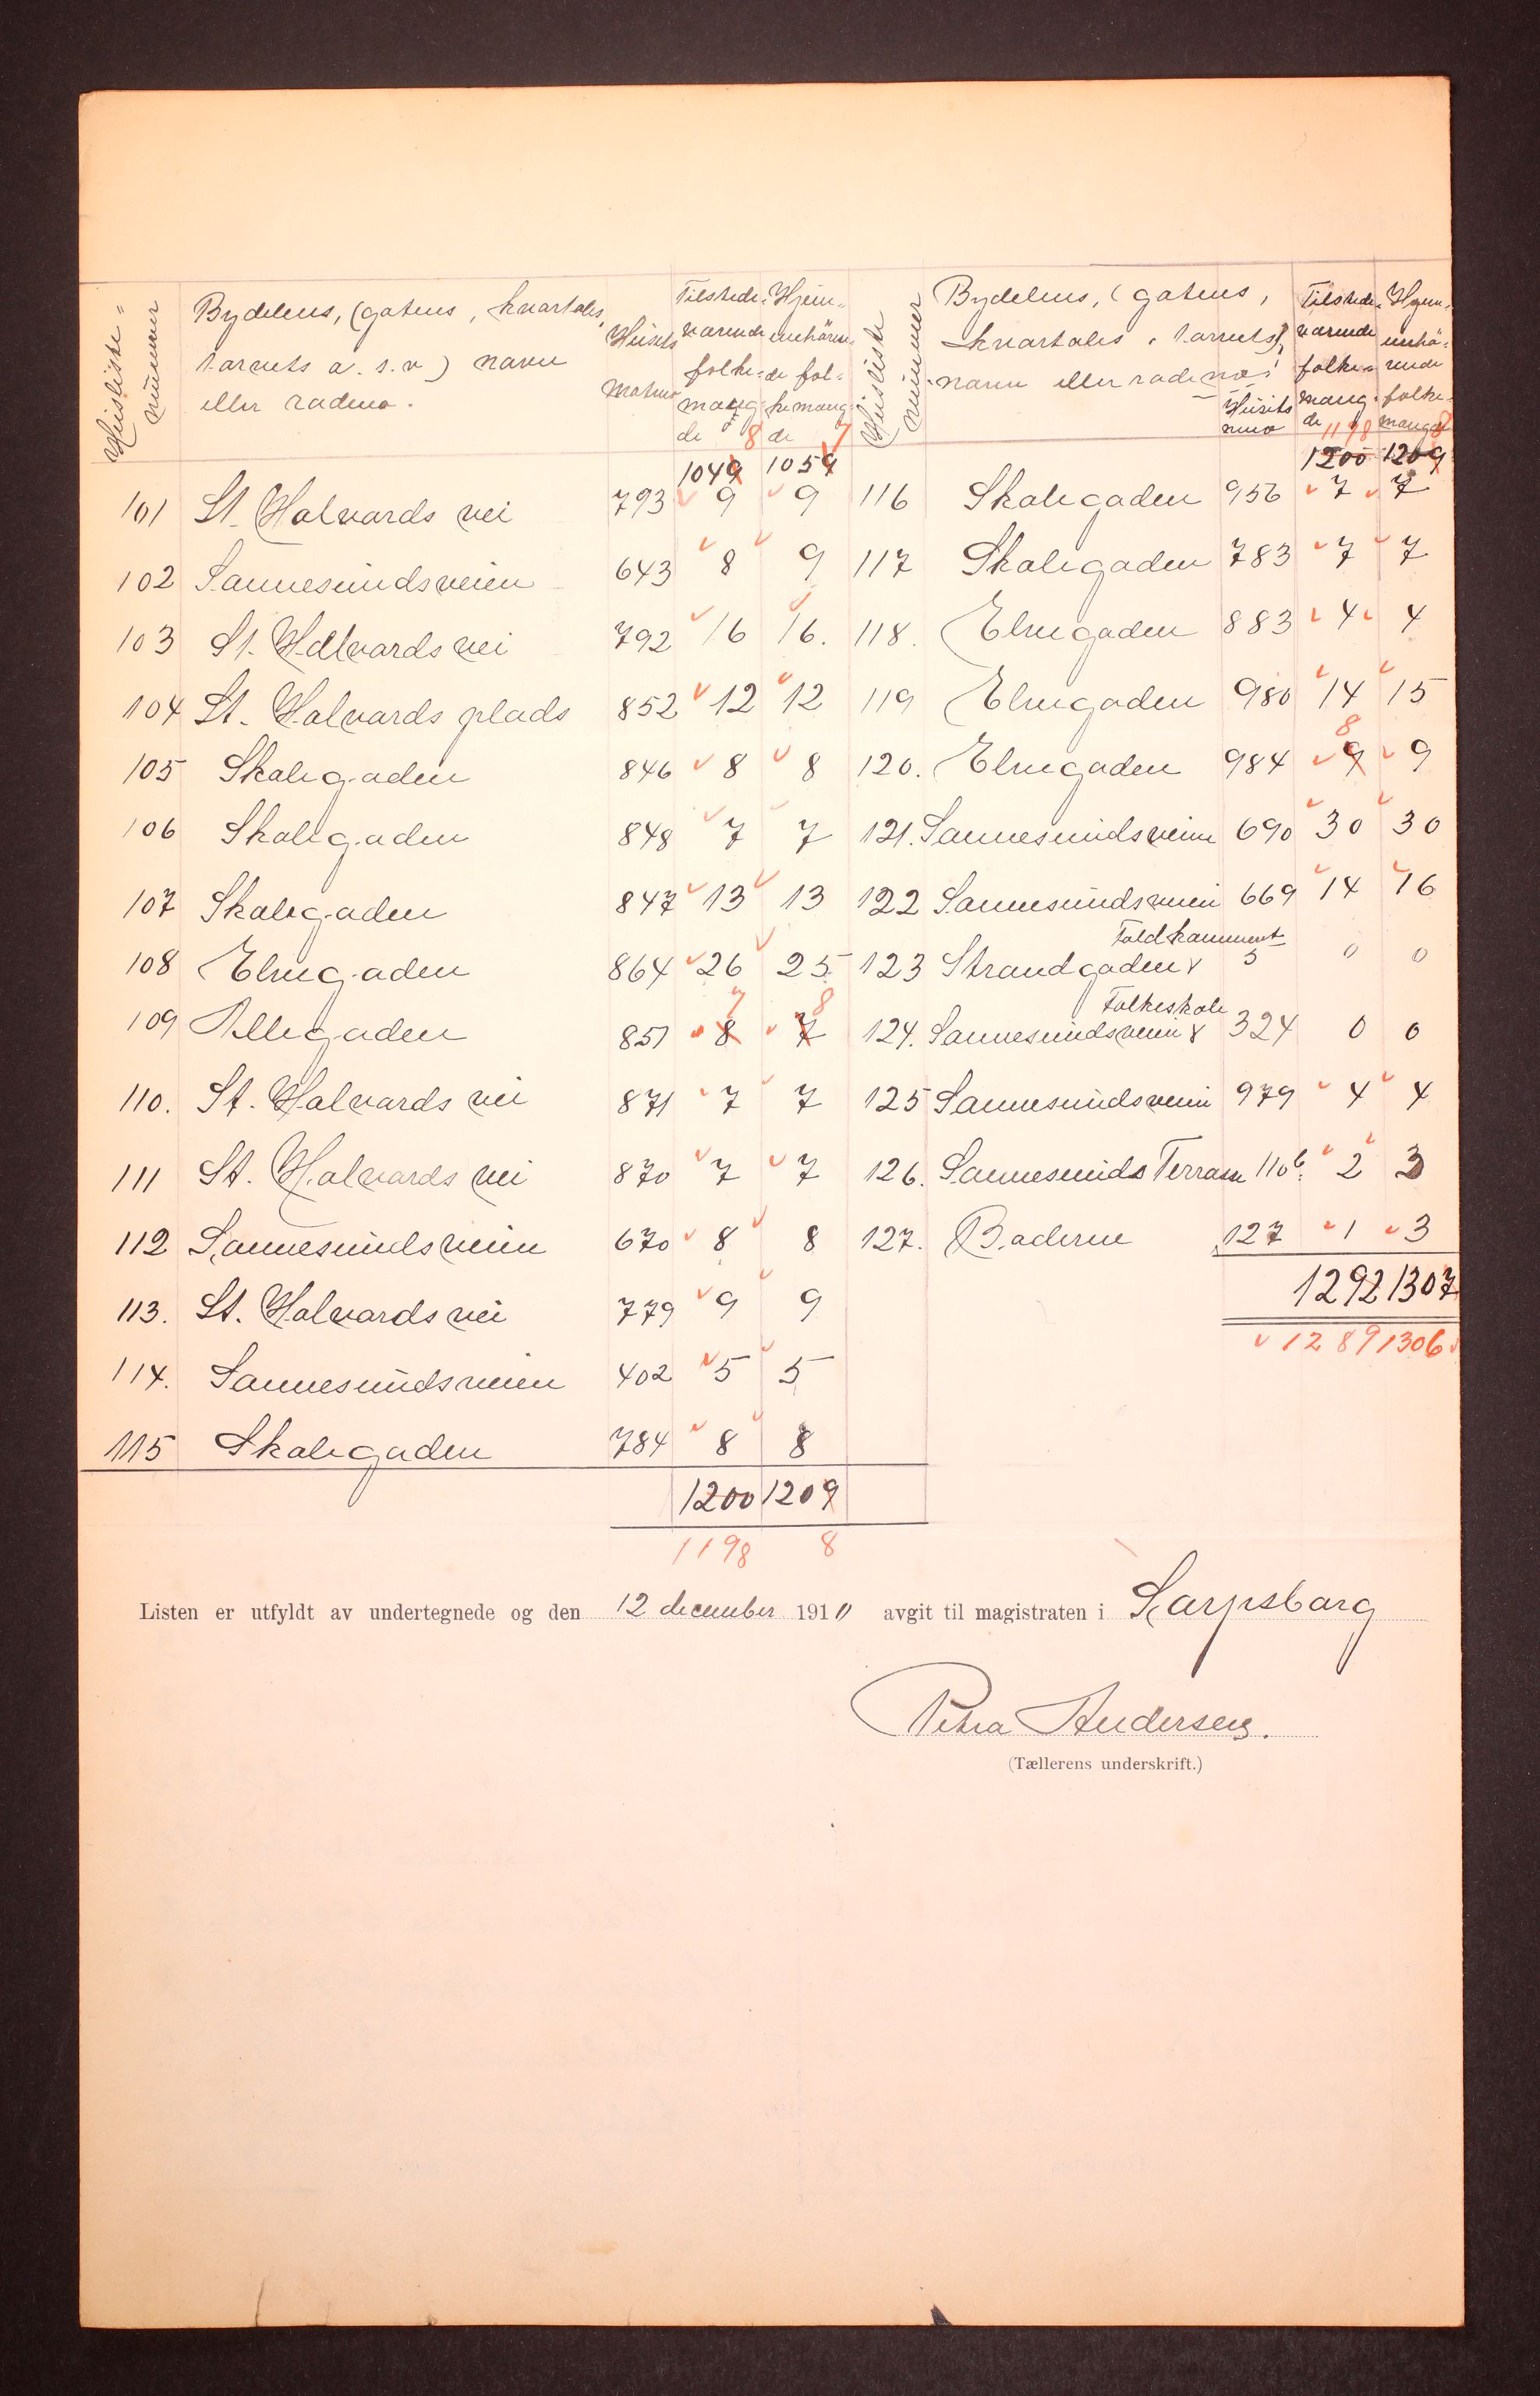 Husliste=
nummer
Bydelens, (gatens, kvartalets,
torvets o. s. v) navn
eller rodeno.
Husets
Matno
Tilstede=
værende
folke=
mæng=
de 8
Hjem=
mehøren=
de fol=
kemæng=
de 7
1049 1059
101 St. Halvards vei 793 9 9
102 Sannesundsveien 643 8 9
103 St. Hallvards vei 792 16 16.
104 St. Halvards plads 852 12 12
105 Skolegaden 846 8 8
106 Skolegaden 848 7 7
107 Skolegaden 847 13 13
108 Elvegaden 864 26 25
7 8
109 Allegaden 851 8 7
110. St. Halvards vei 871 7 7
111 St. Halvards vei 870 7 7
112 Sannesundsveien 670 8 8
113. St. Halvards vei 779 9 9
114. Sannesundsveien 402 5 5
115 Skolegaden 784 8 8
1200 1209
1198 8
Husliste
nummer
Bydelens, (gatens,
kvartalets, torvets),
navn eller rodeno!
Husets
mno
Tilstede=
værende
folke=
mæng=
de 1198
Hjem=
mehø=
rende
folke=
mængde 8
1200 1209
116 Skolegaden 956 7 7
117 Skolegaden 783 7 7
118. Elvegaden 883 4 4
119 Elvegaden 980 14 15
8
120. Elvegaden 984 9 9
121. Sannesundsveien 690 30 30
122 Sannesundsveien 669 14 16
Toldkammeret
123 Strandgaden 5 0 0
Folkeskole
124. Sannesundsveien 324 0 0
125 Sannesundsveien 979 4 4
126. Sannesunds Terrasse 110b. 2 3
127. Baderne 127 1 3
1292 1307
1289 1306
Listen er utfyldt av undertegnede og den 12 december 1910 avgit til magistraten i Sarpsborg
Petra Andersen.
(Tællerens underskrift.)